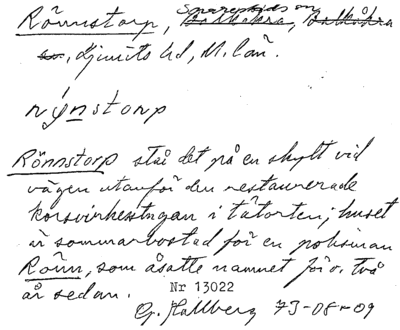 Rönnstorp, Sparepskids sn, Balkåkra
sn, Ljunits hd, M. län.
rýnstorp
Rönnstorp står det på en skylt vid
vägen utanför den restaurerade
korsvirkeslängan i tätorten; huset
är sommarbostad för en polisman
Rönn, som åsatte namnet för c. två
år sedan.
Nr 13022
G. Hallberg 73-08-09